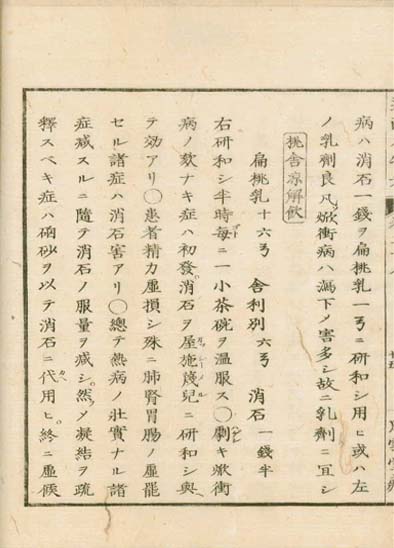 病ハ消石一錢ヲ扁桃乳一弓ニ研和シ用ヒ或ハ左
ノ乳劑良凡焮衝病ハ瀉下メ害多シ故ニ乳劑ニ宜シ
桃舎凉解飲
扁桃乳十六弓 舎利別六弓 消石一錢半
右研和シ半時毎ニ一小茶碗ヲ温服ス〇劇キ焮衝
病ノ欬ナキ症ハ初發消石ヲ屋施篾兒ニ研和シ與
テ効アリ〇患者精力虚損シ殊ニ肺腎胃腸ノ虚罷
セル諸症ハ消石害アリ〇總テ熱病ノ壮實ナル諸
症減スルニ隨テ消石ノ服量ヲ減シ然メ凝結ヲ疏
釋スベキ症ハ硇砂ヲ以テ消石ニ代用ヒ終ニ虚候